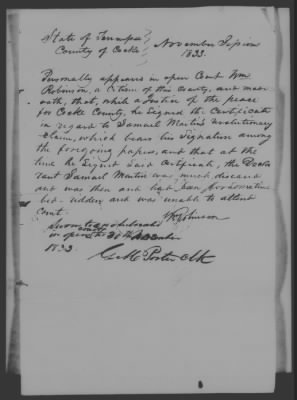 State of Tennessee
County of Cocke
November Session
1833.
Personally appears in open Court Wm
Robinson, a Citizen of this County, and made
oath, that, while a Justice of the peace
for Cocke County, he signed the Certificate
in regard to Samuel Martin's revolutionary
claim, which bears his Signature among
the foregoing papers, and that at the
time he signed said Certificate, the Decla
rant Samuel Martin was much diseased
and was then and had been for some time
bed-ridden and was unable to attend
Court.
Wm Robinson
Sworn to and subscribed
in open court 26th November
1833.
Porter Clk